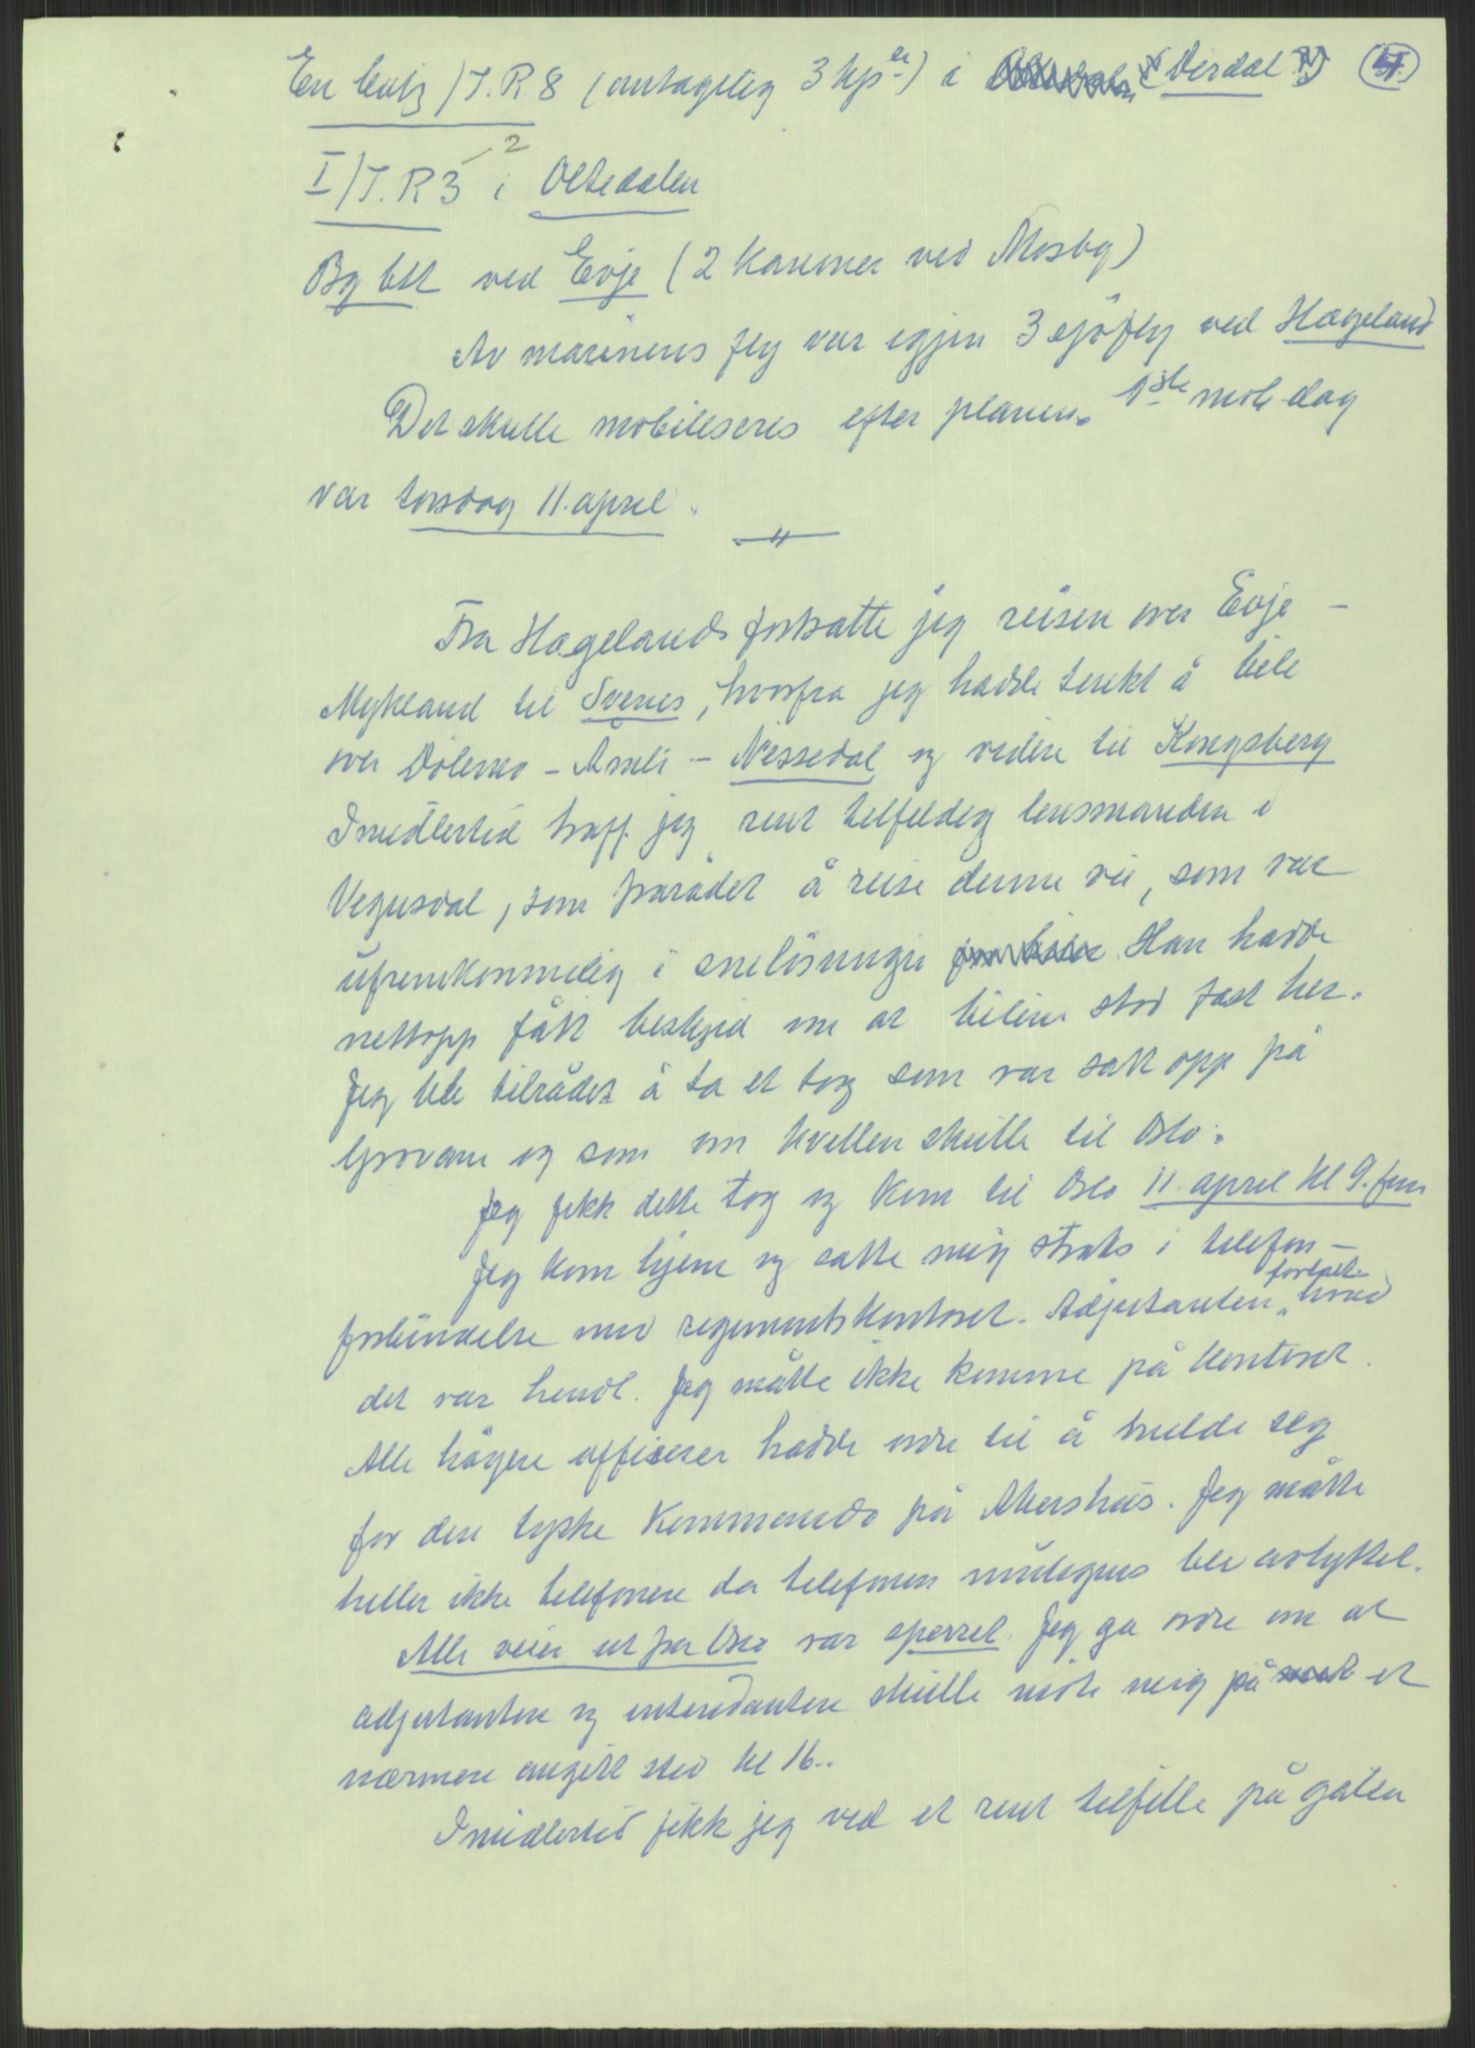 En batj/I.R.8 (antagelig 3 kp.er) i Dirdal 4.
I/I.R 3 2 i Oltedalen
Bg btt ved Evje (2 kanoner ved Mosby)
Av marinens fly var igjen 3 sjöfly ved Hægeland
Det skulle mobiliseres efter planen. 1ste mob dag
var torsdag 11. april.
Fra Hægelands fortsatte jeg reisen over Evje -
Mykland til Svenes, hvorfra jeg hadde tenkt å bile
over Dölemo - Åmli - Nissedal og videre til Kongsberg
Imidlertid traff jeg rent tilfeldig lensmanden i
Vegusdal, som frarådet å reise denne vei, som var
ufremkommelig i snelösningen Han hadde
nettopp fått beskjed om at bilene stod fast her.
Jeg ble tilrådet å ta et tog som var satt opp på
Grovane og som om kvellen skulle til Oslo.
Jeg fikk dette tog og kom til Oslo 11. april kl 9. fm
Jeg kom hjem og satte mig straks i telefon-
forbindelse med regimentskontoret. Adjutanten fortalte hvad
det var hendt. Jeg måtte ikke komme på kontoret.
Alle högere offiserer hadde ordre til å melde seg
for den tyske Kommando på Akershus. Jeg måtte
heller ikke telefonere da telefonen muligens ble avlyttet.
Alle veier ut fra Oslo var sperret. Jeg ga ordre om at
adjutanten og intendanten skulle möte meig på et
nærmere angitt sted kl 16..
Imidlertid fikk jeg ved et rent tilfelle på gaten